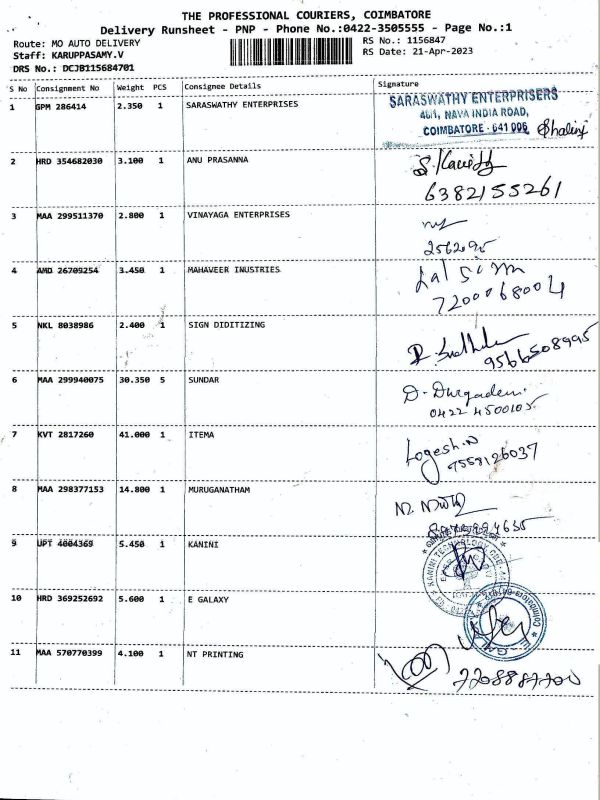 THE PROFESSIONAL COURIERS, COIMBATORE
Delivery Runsheet - PNP - Phone No.:0422-3505555 - Page No.:1
Route: MO AUTO DELIVERY RS No.: 1156847
Staff: KARUPPASAMY.V RS Date: 21-Apr-2023
DRS No.: DCJB115684701
S No Consignment No Weight PCS Consignee Details Signature
1 GPM 286414 2.350 1 SARASWATHY ENTERPRISES
SARASWATHY ENTERPRISERS
COIMBATORE - 641 006, Shalini
2 HRD 354682030 3.100 1 ANU PRASANNA
6382155261
3 MAA 299511370 2.800 1 VINAYAGA ENTERPRISES
4 AMD 26709254 3.450 1 MAHAVEER INUSTRIES
7200068004
5 NKL 8038986 2.400 1 SIGN DIDITIZING
9566508995
6 MAA 299940075 30.350 5 SUNDAR
0422 4500105
7 KVT 2817260 41.000 1 ITEMA
Logesh.N
9558126037
8 MAA 298377153 14.800 1 MURUGANATHAM
9 UPT 4004369 5.450 1 KANINI
10 HRD 369252692 5.600 1 E GALAXY
11 MAA 570770399 4.100 1 NT PRINTING